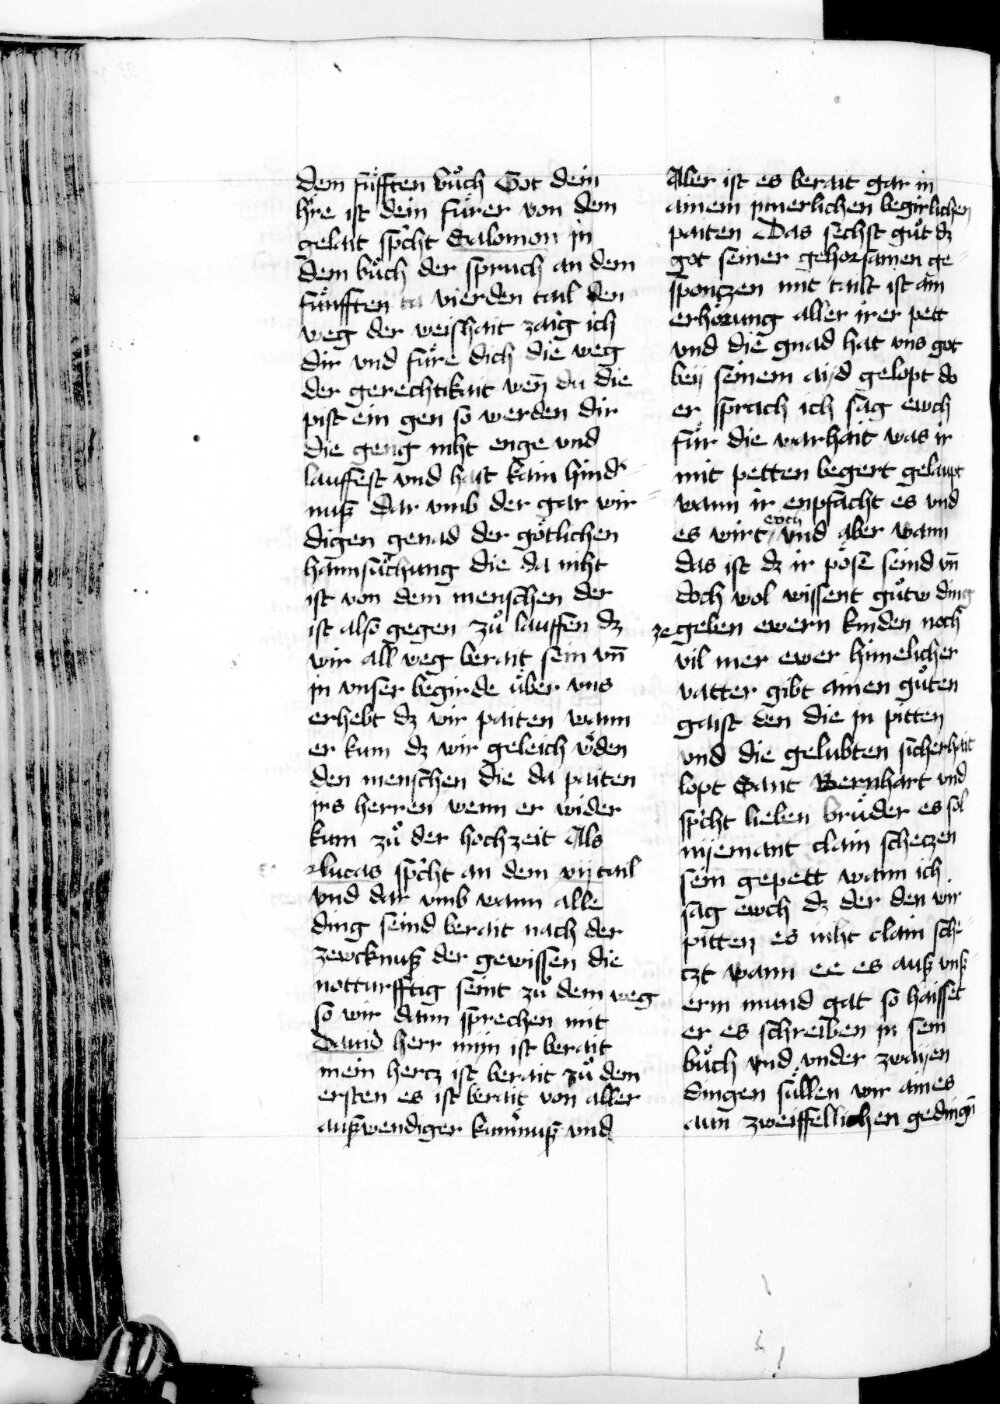 dem fúfften bůch Got dein
h're ist dein fúrer von dem
gelait sp'cht Salomon in
dem bůch der spruch an dem
fúnfften vierden tail den
weg der weishait zaig ich
dir vnd fúre dich die weg
der gerechtikait wen̄ du die
pist ein gen so werden dir
die geng niht enge vnd
lauffest vnd hast kain hind'-
nuß Dar vmb der gar wir-
digen genad der götlichen
haimsůchung die da niht
ist von dem menschen der
ist also gegen zů lauffen dz
wir all weg berait sein vn̄
in vnser begirde über vns
erhebt dz wir paiten wann
er kum dz wir geleich w'den
den menschen die da paiten
irs herren wenn er wider
kum zů der hochzeit Als
Lucas sp'cht an dem xij tail
vnd dar vmb wann alle
ding seind berait nach der
zewcknuß der gewissen die
notturfftig seint zů dem weg
so wir dann sprechen mit
Dauid herr mijn ist berait
mein hercz ist berait zů dem
ersten es ist berait von aller
außwendiger kumernuß vnd
Aller ist es berait gar in
ainem innerlichen begirlichen
paiten Das sechst gůt dz
got seiner gehorsamen ge-
sponczen mit tailt ist ain
erhörung aller irer pett
vnd die gnad hat vns got
beij seinem aijd gelopt do
er sprach ich sag ewch
fúr die warhait was ir
mit petten begert gelaupt
wann ir enpfacht es vnd
es wirt ewch vnd aber wann
das ist dz ir pöse seind vn̄
doch wol wissent gůtw ding
ze geben ewern kinden noch
vil mer ewer himelicher
vatter gibt ainen gůten
gaist den die in pitten
vnd die gelubten sicherhait
lopt Sant Bernhart vnd
sp'cht lieben brúder es sol
nijemant clain scheczen
sein gepett wann ich
sag ewch dz der den wir
pitten es niht clain sche-
czt wann ee es auß vns-
erm mund gat so haisset
er es schreiben in sein
bůch vnd vnder zwaijen
dingen súllen wir aines
aun zweiffellichen gedingn̄